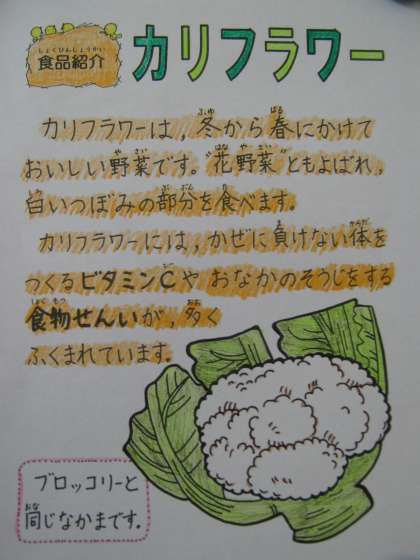 しょくひんしょうかい
食品紹介
カリフラワー
カリフラワーは，冬から春にかけて
おいしい野菜です。"花野菜"ともよばれ，
白いつぼみの部分を食べます。
カリフラワーには，かぜに負けない体を
つくるビタミンCや おなかのそうじをする
食物せんいが，多く
ふくまれています。
ブロッコリーと
同じなかまです。